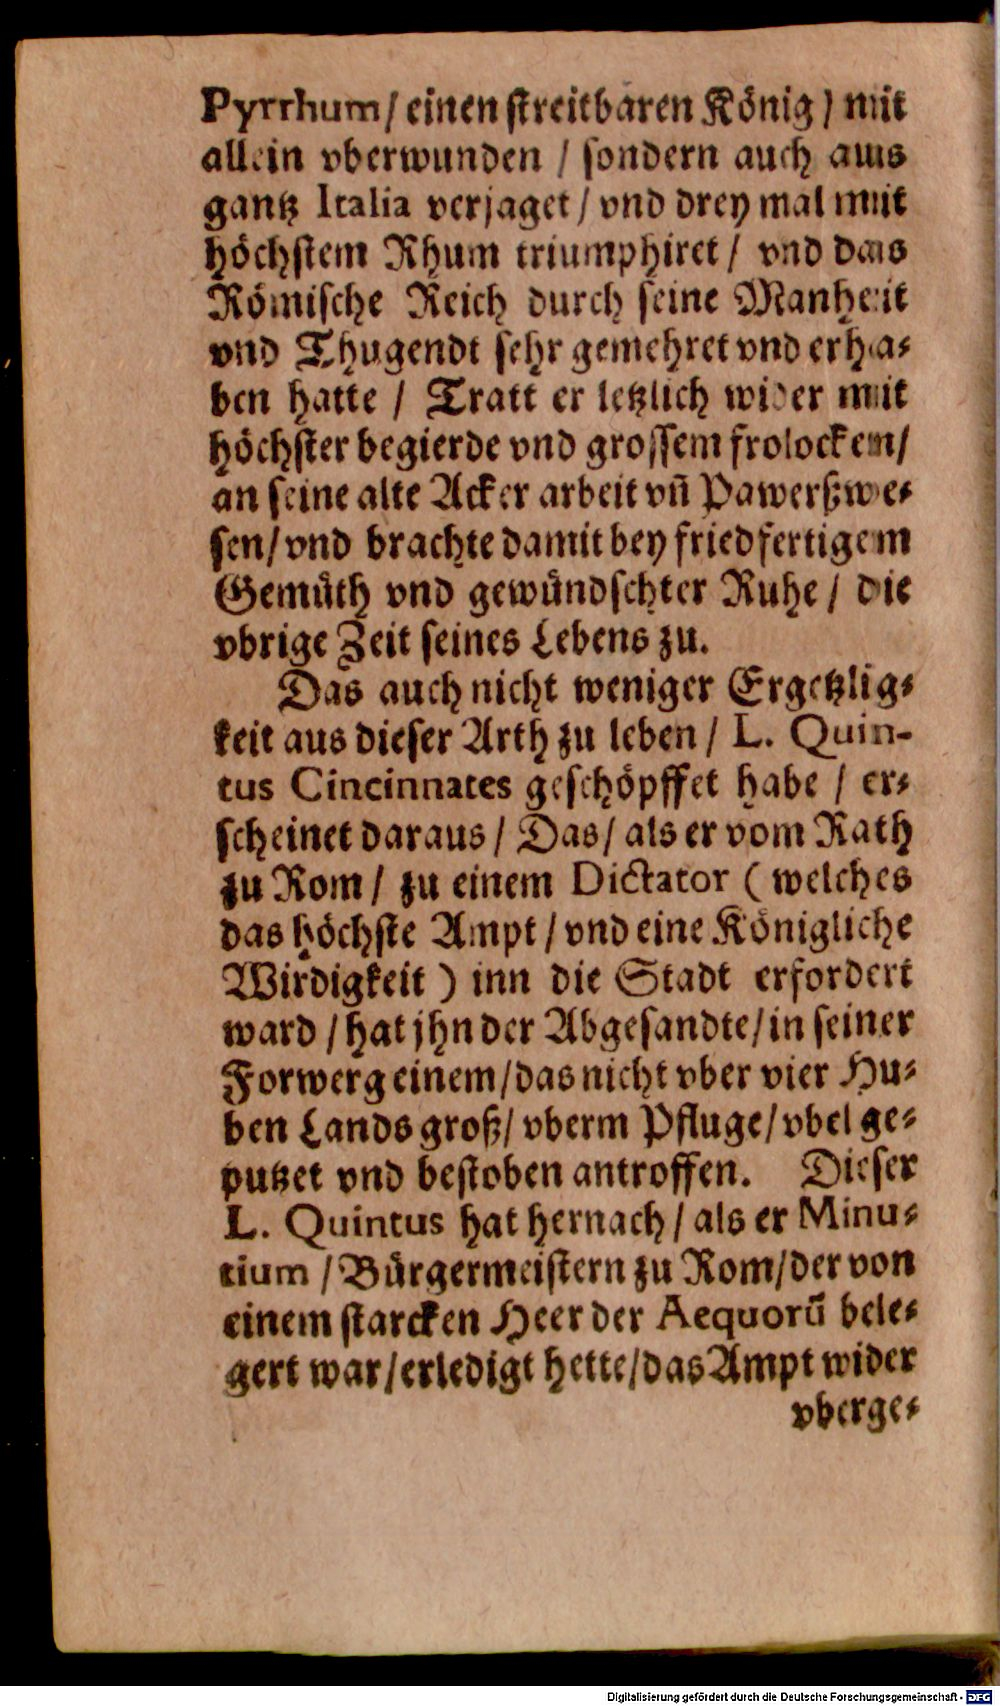 Pyrrhum / einen streitbaren König / nit
allein vberwunden / sondern auch aus
gantz Italia verjaget / vnd drey mal mit
höchstem Rhum triumphiret / vnd das
Römische Reich durch seine Manheit
vnd Thugendt sehr gemehret vnd erha⸗
ben hatte / Tratt er letzlich wider mit
höchster begierde vnd grossem frolocken /
an seine alte Acker arbeit vñ Pawerßwe⸗
sen / vnd brachte damit bey friedfertigem
Gemüth vnd gewündschter Ruhe / die
vbrige Zeit seines Lebens zu.
Das auch nicht weniger Ergetzlig⸗
keit aus dieser Arth zu leben / L. Quin-
tus Cincinnates geschöpffet habe / er⸗
scheinet daraus / Das / als er vom Rath
zu Rom / zu einem Dictator ( welches
das höchste Ampt / vnd eine Königliche
Wirdigkeit ) inn die Stadt erfordert
ward / hat jhn der Abgesandte / in seiner
Forwerg einem / das nicht vber vier Hu⸗
ben Lands groß / vberm Pfluge / vbel ge⸗
putzet vnd bestoben antroffen. Dieser
L. Quintus hat hernach / als er Minu⸗
tium / Bürgermeistern zu Rom / der von
einem starcken Heer der Aequorũ bele⸗
gert war / erledigt hette / das Ampt wider
vberge⸗
Digitalisierung gefördert durch die Deutsche Forschungsgemeinschaft - DFG